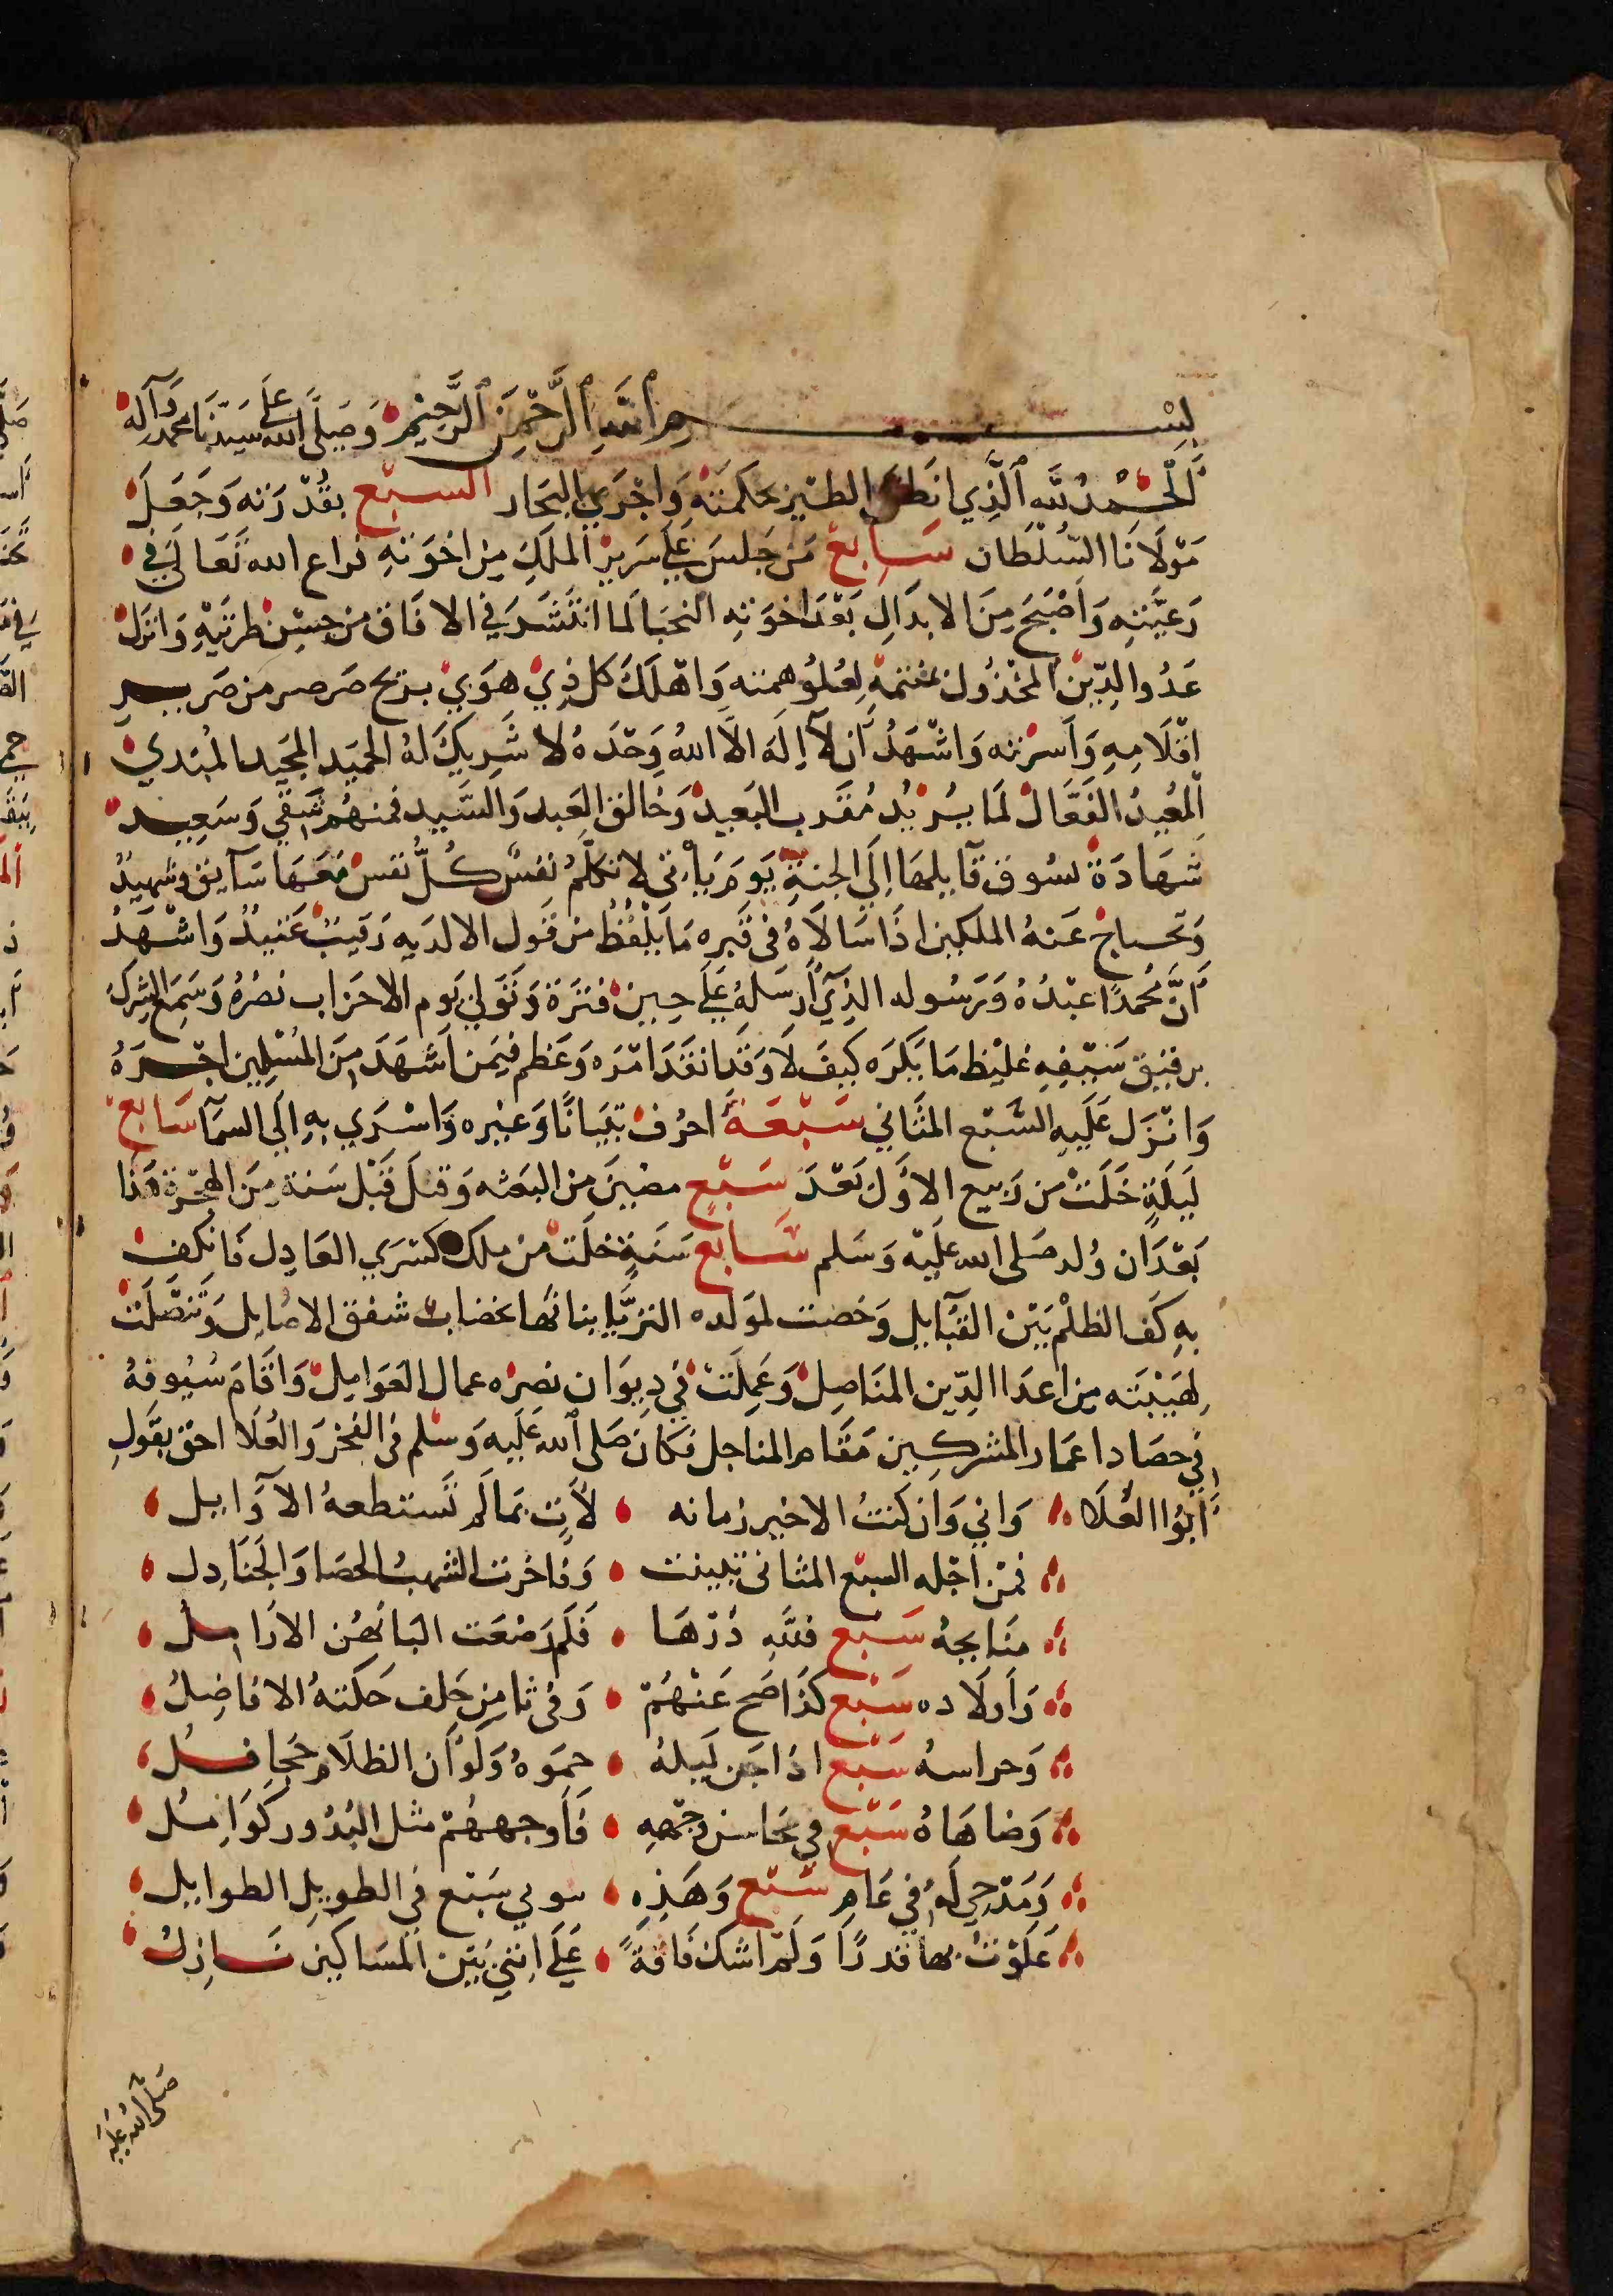 بسم الله الرحمن الرحيم وصلى الله على سيدنا محمد وآله
الحمد لله الذي انطق الطير بحكمته واجري البحار السبع بقدرته وجعل
مولانا السلطان سابع من جلس علي سرير الملك من اخوته فراع الله تعالي في
رعيته واصبح من الابدال بعد اخوته النجبا لما انتشر في الافاق من حسن طريته وانزل
عدو الدين المخذول لعلو همته واهلك كل ذي هوي بريح صرصر من صرير
اقلامه واسرته واشهد أن لآ إله الا الله وحده لا شريك له الحميد المجيد المبدي
المعيد الفعال لما يريد مقرب البعيد وخالق العبد والسيد فمنهم شقي وسعيد
شهادة تسوق قآيلها إلي الجنة يوم يأتي لا تكلم نفس كل نفس معها سآيق وشهيد
وتحاج عنه الملكين اذا سالاه في قبره ما يلفظ من قول الا لديه رقيب عتيد واشهد
أن محمدا عبده ورسوله الذي أرسله علي حين فترة وتولي يوم الاحزاب نصره وسمع الشرك
برقيق سيفه غليظ ما يكره كيف لا وقد انفذ امره وعظم فيمن اشهد من المسلمين اجره
وانزل عليه السبع المثاني سبعة احرف تبيانا وعبره واسري به الي السمآ سابع
ليلة خلت من ربيع الاول بعد سبع مضين من البعثه وقيل قبل سنة من الهجرة هذا
بعد ان ولد صلى الله عليه وسلم سابع سنة خلت من ملك كسري العادل فانكف
به كف الظلم بين القبآيل وخضبت لمولده الثريا بنانها بخضاب شفق الاصايل وتنصلت
لهيبته من اعدا الدين المناصل وعملت في ديوان نصره عمال العوامل واقام سيوفه
في حصاد اعمار المشركين مقام المناجل فكان صلى الله عليه وسلم في الفخر والعلا احق بقول
أبوا العلا واني وان كنت الاخير زمانه لآت بما لم تستطعه الآوايل
فمن اجله السبع المثاني تبينت وفاخرت الشهب الحصا والجنادل
منايحه سبع فلله درها فكم رضعت البانهن الارامل
واولاده سبع كذا صح عنهم وفي ثامن خلف حكته الافاضل
وحراسه سبع اذا جن ليله حموه ولو أن الظلام جحافل
وضاهاه سبع في محاسن وجهه فأوجههم مثل البدور كوامل
ومدحي له في عام سبع وهذه سوي سبع في الطويل الطوايل
علوت بها قدرا ولم اشك فاقة علي انني بين المساكين نازل
صلى الله عليه